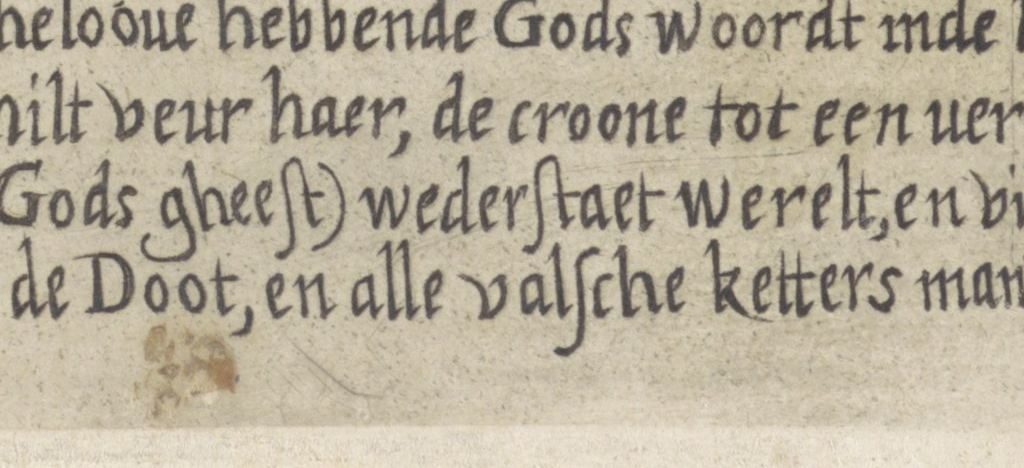 helooue hebbende Gods woordt inde
hilt veur haer, de croone tot een uer
Gods gheeſt) wederſtaet werelt, en vi
de Doot, en alle valſche ketters man